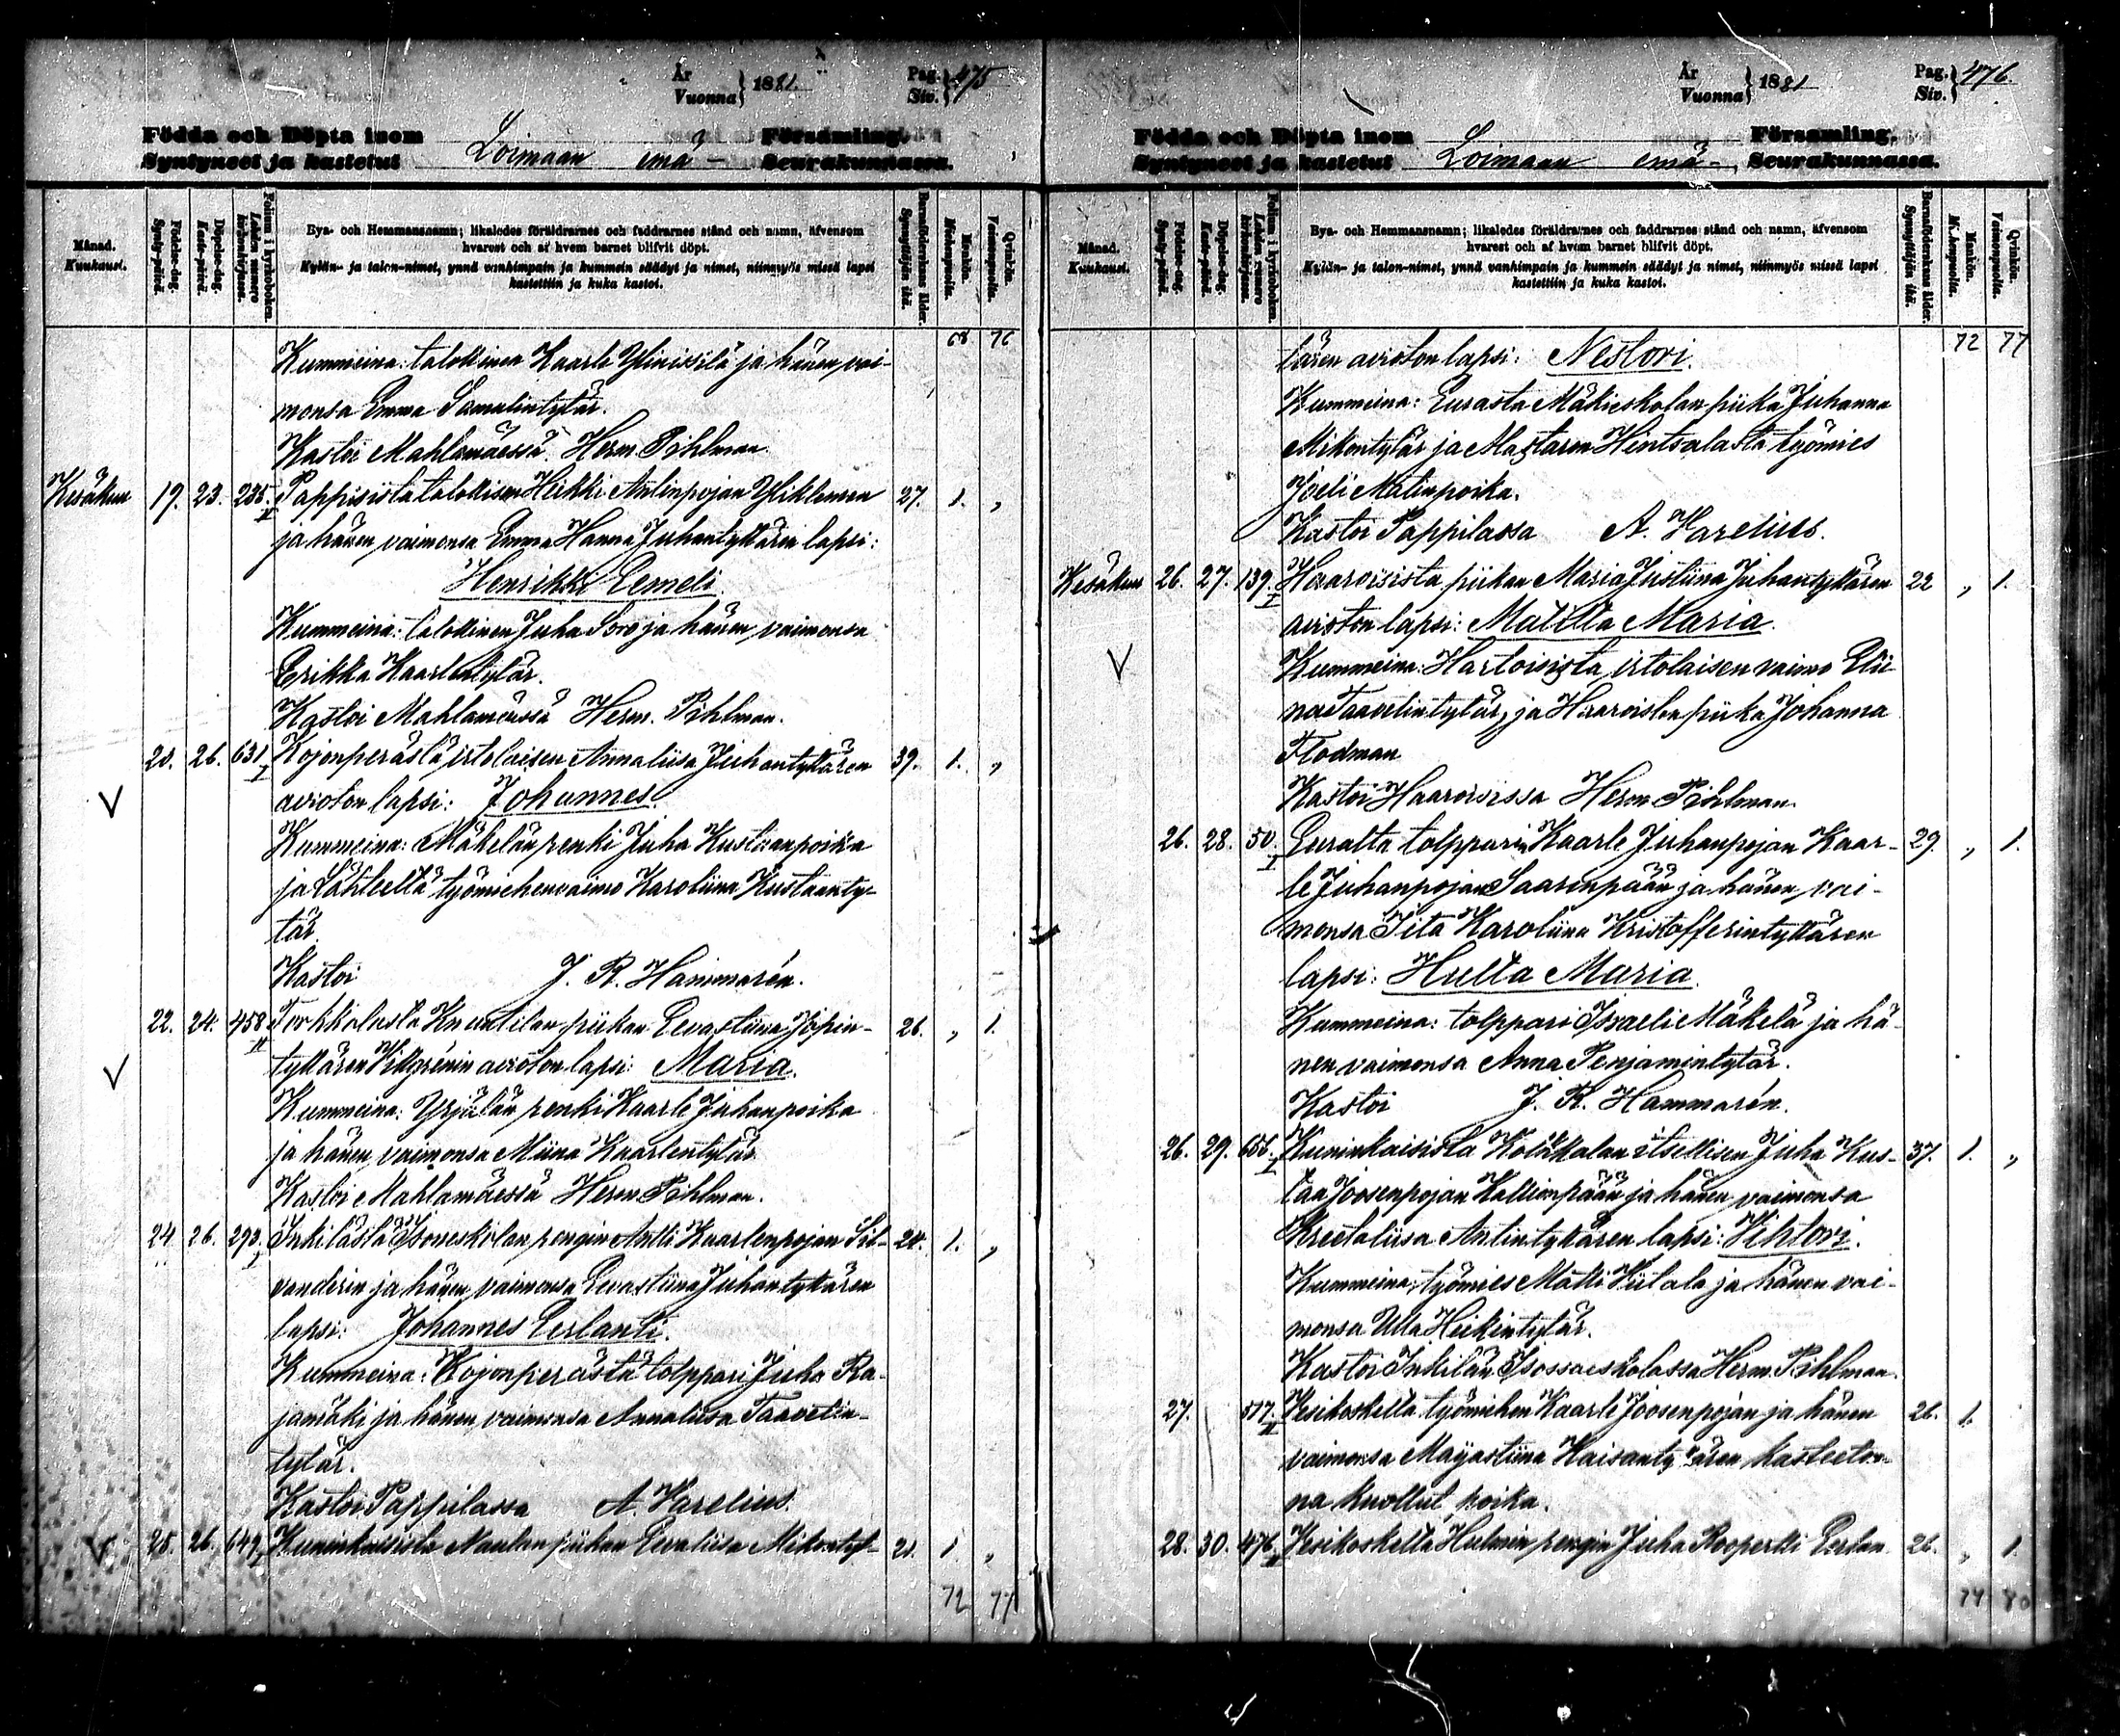 År
Vuonna } 1881.
Pag.
Siv. } 475
Födda och Döpta inom Församling.
Syntyneet ja kastetut Loimaan emä- Seurakunnassa.
Månad.
Kuukausi.
Födelse-dag.
Synty-päivä.
Döpelse-dag.
Kaste-päivä.
Folium i kyrkoboken.
Lehden numero kirkonkirjassa.
Bya- och Hemmansnamn; likaledes föräldrarnes och faddrarnes stånd och namn, äfvensom
hvarest och af hvem barnet blifvit döpt.
Kylän- ja talon-nimet, ynnä vanhimpain ja kummein säädyt ja nimet, niinmyös missä lapsi
kastettiin ja kuka kastoi.
Barnaföderskans ålder.
Synnyttäjän ikä.
Mankön.
Miehenpuolta.
Qvinkön.
Vaimonpuolta.
68 76
Kummeina: talollinen Kaarle Ylinisilä ja hänen vai-
monsa Emma Samulintytär.
Kastoi Mahlamäessä Herm. Pihlman.
Kesäkuu 19. 23. 235. Pappisista talollisen Heikki Antinpojan 27. 1. „
ja hänen vaimonsa Emma Hanna Juhantyttären lapsi:
Henrikki Eemeli.
Kummeina: talollinen Juha Soro ja hänen vaimonsa
Erikka Kaarlentytär.
Kastoi Mahlamäessä Herm. Pihlman.
20. 26. 631 I Kojonperästä irtolaisen Annaliisa Juhantyttären 39. 1. „
avioton lapsi: Johannes.
Kummeina: Mäkelän renki Juha Kustaanpoika
ja Lähteeltä työmiehenvaimo Karoliina Kustaanty-
tär
Kastoi J. R. Hammarén.
22. 24. 458 II Torkkalasta Knuutilan piikan Eevastiina Jopin- 26. „ 1.
tyttären Vikgrénin avioton lapsi: Maria.
Kummeina: Yrjälän renki Kaarle Juhanpoika
ja hänen vaimonsa Miina Kaarlentytär
Kastoi Mahlamäessä Herm. Pihlman.
24. 26. 293. I Inkilästä Isoneskolan rengin Antti Kaarlenpojan Sil- 24. 1. „
vanderin ja hänen vaimonsa Eevastiina Juhantyttären
lapsi: Johannes Eerlanti.
Kummeina: Kojonperästä tolppari Juha Ra-
jamäki ja hänen vaimonsa Annaliisa Taavetin-
tytär.
Kastoi Pappilassa A. Varelius.
25. 26. 649 I Kuninkaisista Naulan piikan Eevaliisa Mikontyt- 21. 1. „
72 77
År
Vuonna } 1881
Pag.
Siv. } 476.
Födda och Döpta inom Församling.
Syntyneet ja kastetut Loimaan emä-, Seurakunnassa.
Månad.
Kuukausi.
Födelse-dag.
Synty-päivä.
Döpelse-dag.
Kaste-päivä.
Folium i kyrkoboken.
Lehden numero kirkonkirjassa.
Bya- och Hemmansnamn; likaledes föräldrarnes och faddrarnes stånd och namn, äfvensom
hvarest och af hvem barnet blifvit döpt.
Kylän- ja talon-nimet, ynnä vanhimpain ja kummein säädyt ja nimet, niinmyös missä lapsi
kastettiin ja kuka kastoi.
Barnaföderskans ålder.
Synnyttäjän ikä.
Mankön.
Miehenpuolta.
Qvinkön.
Vaimonpuolta.
72 77
tären avioton lapsi: Nestori.
Kummeina: Eurasta Mäkieskolan piika Juhanna
Mikontytär ja Hintsalasta työmies
Joeli Matinpoika.
Kastoi Pappilassa A. Varelius.
Kesäkuu 26. 27. 139. I Haaroisista piikan Maria Justiina Juhantyttären 22 „ 1.
avioton lapsi: Matilta Maria.
Kummeina: Hartoisista irtolaisen vaimo Elii-
na Taavetintytär, ja Haaroisten piika Johanna
Flodman
Kastoi Haaroisissa Herm. Pihlman.
26. 28. 50. I Euralta tolpparin Kaarle Juhanpojan Kaar- 29. „ 1.
le Juhanpojan Saarenpään ja hänen vai-
monsa Iita Karoliina Kristofferintyttären
lapsi: Hulta Maria.
Kummeina: tolppari Israeli Mäkelä ja hä-
nen vaimonsa Anna Penjamintytär.
Kastoi J. R. Hammarén.
26. 29. 656. I Kuninkaisista Kolkkalan itsellisen Juha Kus- 37. 1. „
taa Joosenpojan Kallionpään ja hänen vaimonsa
Kreetaliisa Antintyttären lapsi: Vihtori.
Kummeina: työmies Matti Hiitala ja hänen vai-
monsa Ulla Heikintytär.
Kastoi Inkilän Isossaeskolassa Herm. Pihlman.
27. 517. II Vesikoskelta työmiehen Kaarle Joosenpojan ja hänen 26. 1.
vaimonsa Majastiina kasteeton-
na kuollut poika.
28. 30. 476 II Vesikoskelta Hulmin rengin Juha Roopertti Eerlan 26. „ 1.
74 80